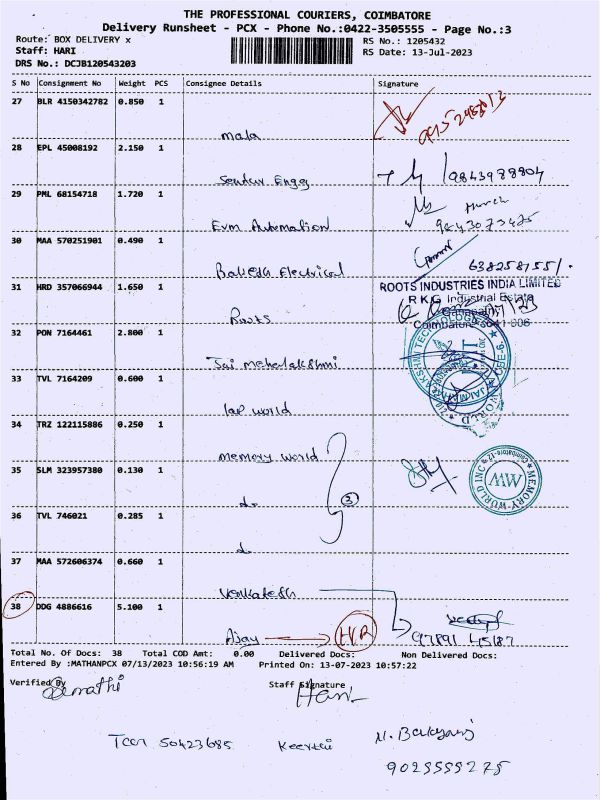 THE PROFESSIONAL COURIERS, COIMBATORE
Delivery Runsheet - PCX - Phone No.:0422-3505555 - Page No.:3
Route: BOX DELIVERY x
RS No.: 1205432
Staff: HARI
RS Date: 13-Jul-2023
DRS No.: DCJB120543203
S No Consignment No Weight PCS Consignee Details Signature
27 BLR 4150342782 0.850 1
mala
28 EPL 45008192 2.150 1
Engg 9843978804
29 PML 68154718 1.720 1
Evm Automation
30 MAA 570251901 0.490 1
Electrical
31 HRD 357066944 1.650 1
ROOTS INDUSTRIES INDIA LIMITED
R K G Industrial Estate
Ganapathy
Roots
32 PON 7164461 2.800 1
Jai mahalakshmi
33 TVL 7164209 0.600 1
lap world
34 TRZ 122115886 0.250 1
memory world
35 SLM 323957380 0.130 1
MEMORY WORLD INC
Coimbatore-12
MW
3
36 TVL 746021 0.285 1
37 MAA 572606374 0.660 1
Venkatesh
38 DDG 4886616 5.100 1
Ajay HVR 97891 45187
Total No. Of Docs: 38 Total COD Amt: 0.00 Delivered Docs: Non Delivered Docs:
Entered By :MATHANPCX 07/13/2023 10:56:19 AM Printed On: 13-07-2023 10:57:22
Verified By Staff Signature
Hari
50423685 Keerthi
9025555275